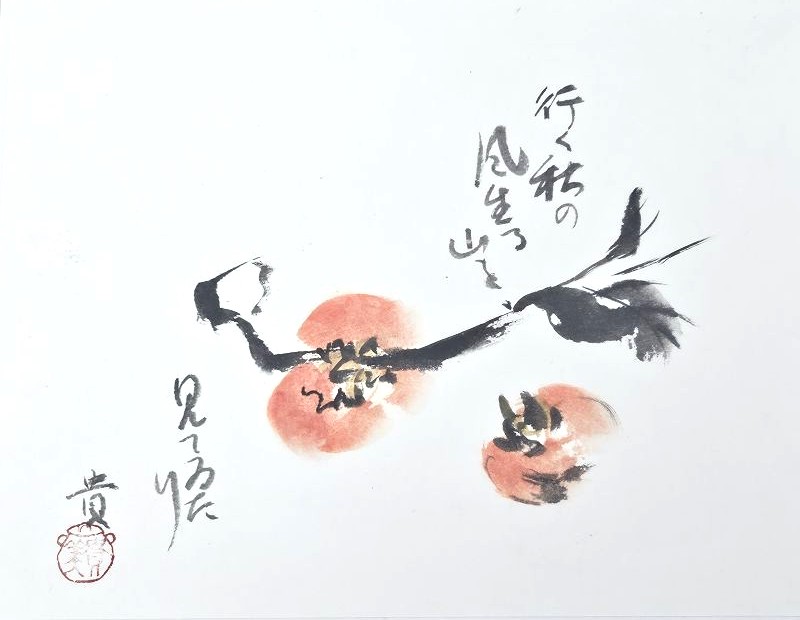 行く秋の
風生る山を
見てゐた
り
貴